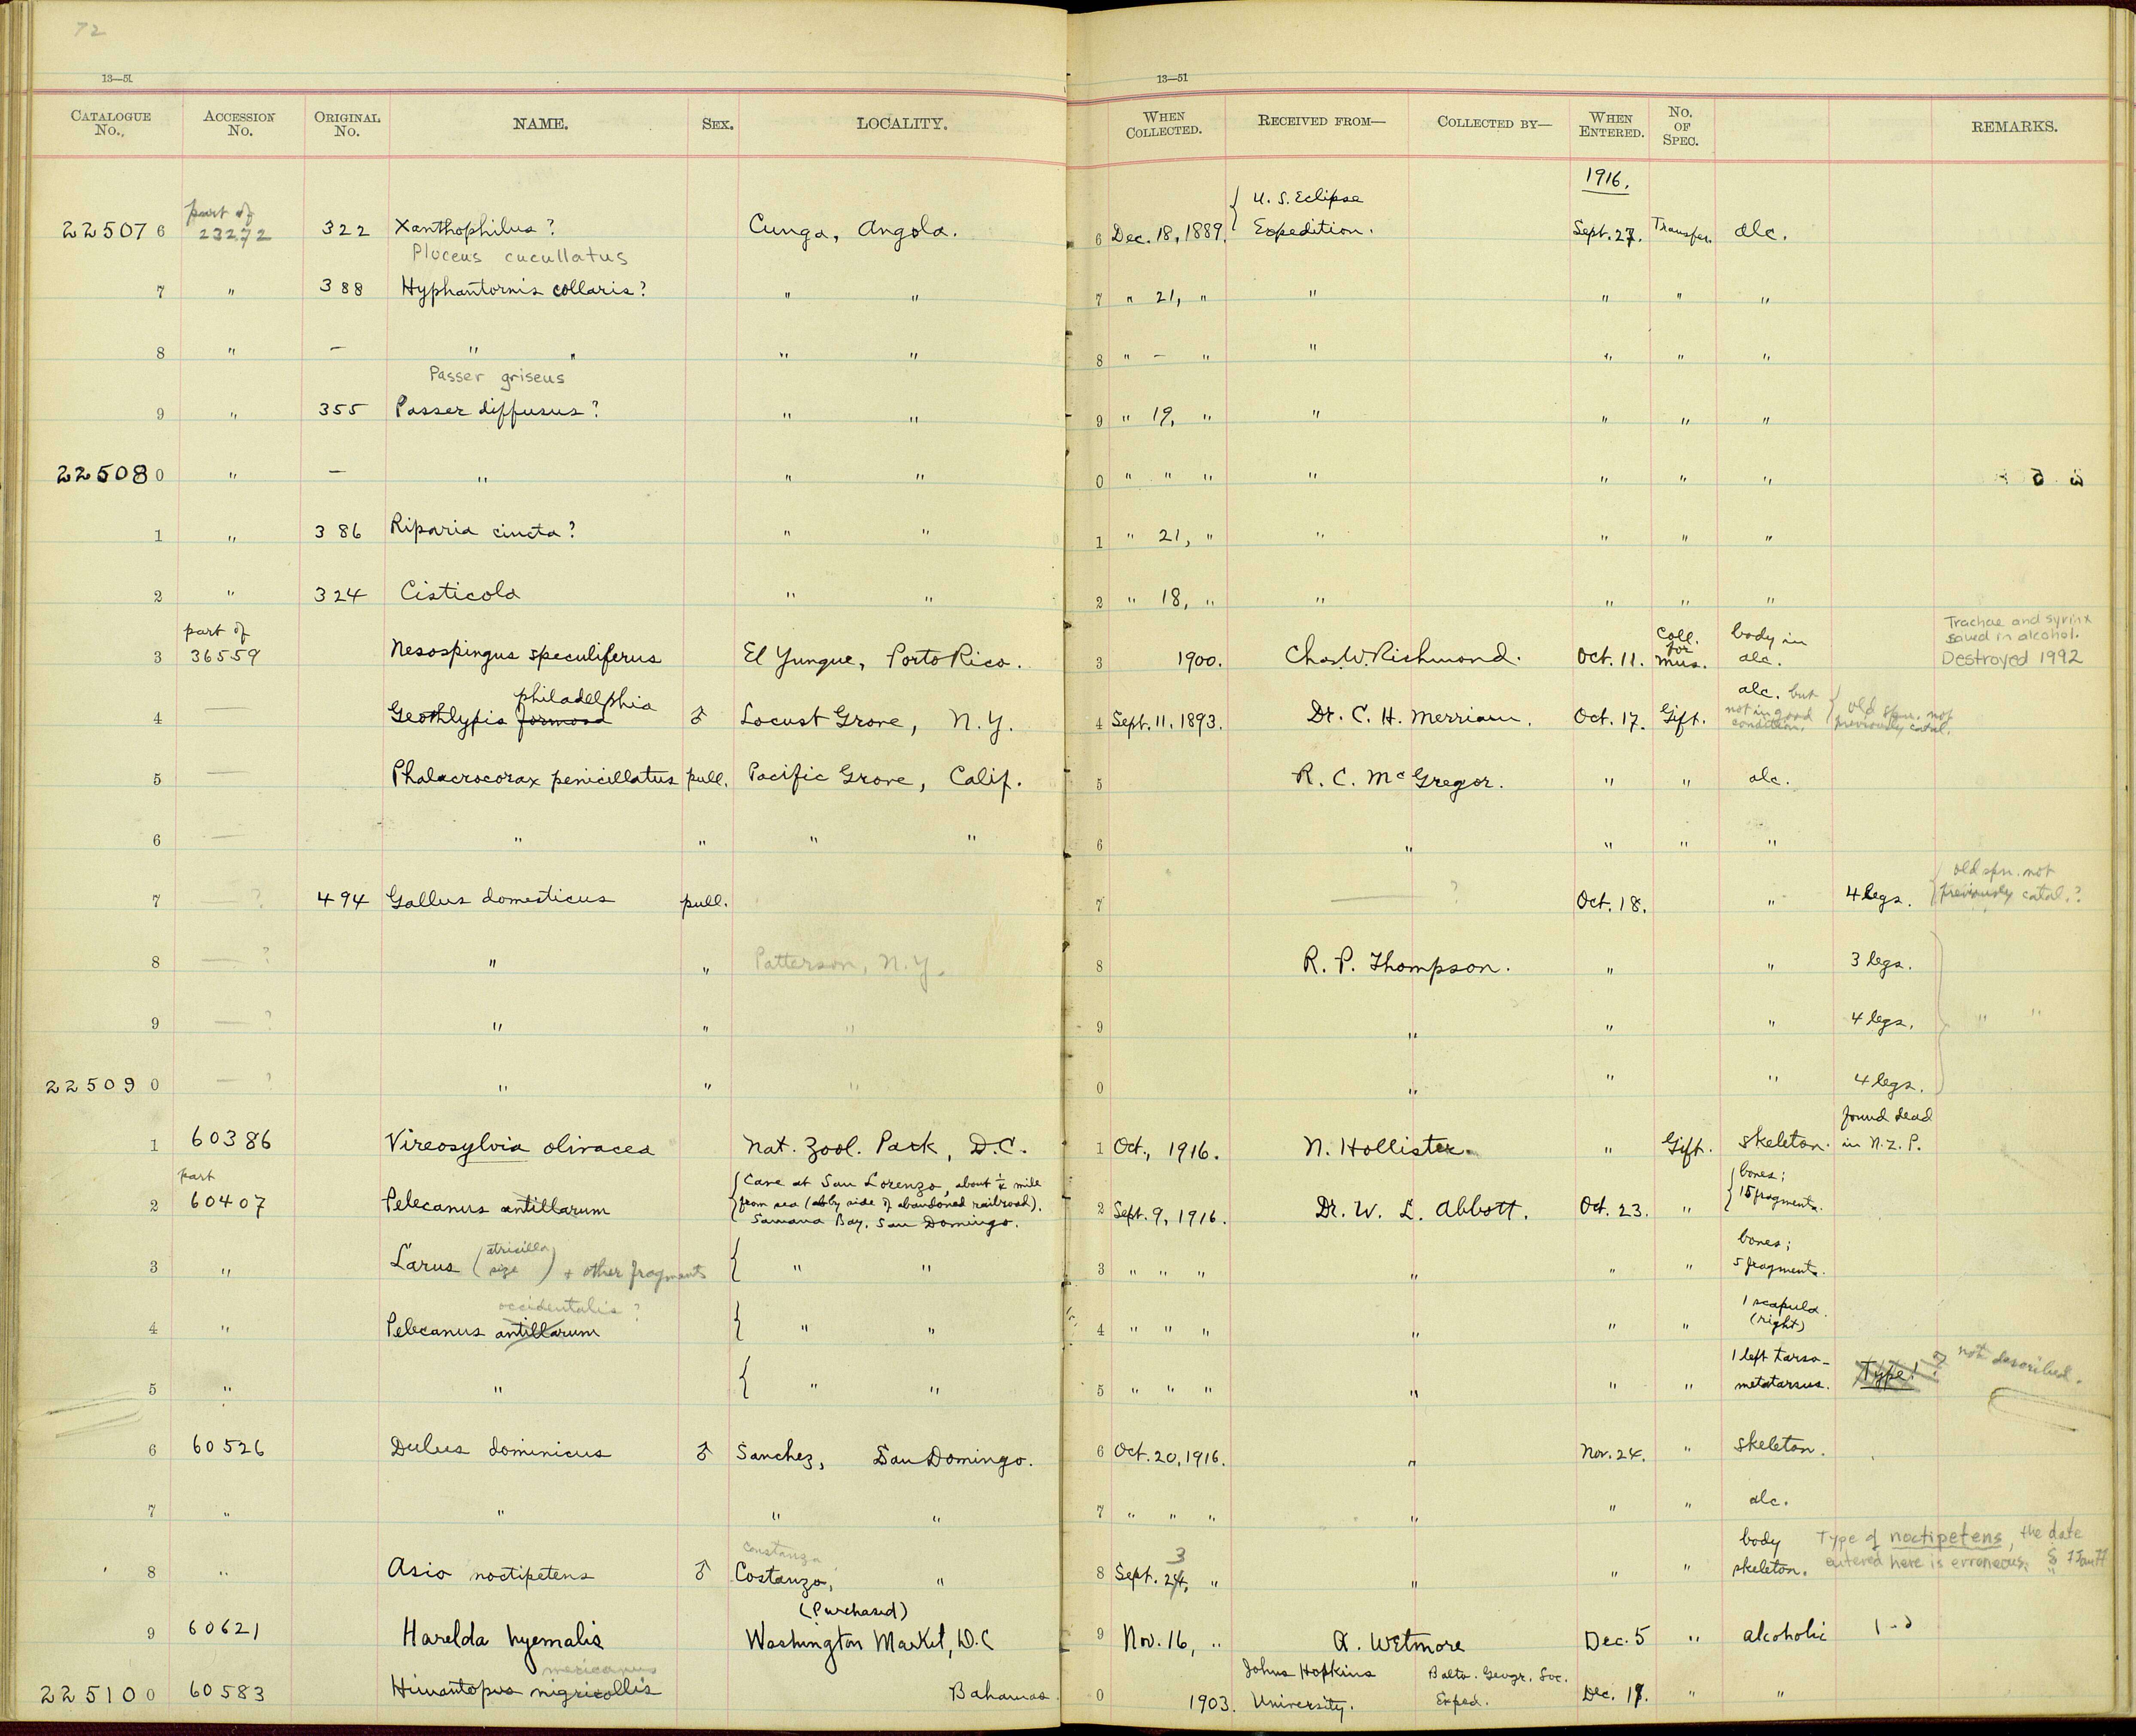 72
13—51 13—51
CATALOGUE No. ACCESSION No. ORIGINAL No. NAME. SEX. LOCALITY. WHEN COLLECTED. RECEIVED FROM— COLLECTED BY— WHEN ENTERED. No. OF SPEC. REMARKS.
1916.
part of U. S. Eclipse
225076 23272 322 Xanthophilus? Cunga, Angola. 6 Dec. 18, 1889. { Expedition. Sept. 27. Transfer. alc.
Ploceus cucullatus
7 " 388 Hyphantornis collaris? " " 7 " 21, " " " " "
8 " — " " " " 8 " — " " " " "
Passer griseus
9 " 355 Passer diffusus? " " 9 " 19, " " " " "
225080 " — " " " 0 " " " " " " "
1 " 386 Riparia cincta? " " 1 " 21, " " " " "
2 " 324 Cisticola " " 2 " 18, " " " " "
part of Coll. for body in Trachae and syrinx saved in alcohol.
3 36559 Nesospingus speculiferus El Yunque, Porto Rico. 3 1900. Chas. W. Richmond. Oct. 11. mus. alc. Destroyed 1992
philadelphia
4 — Geothlypis formosa ♂ Locust Grove, N.Y. 4 Sept. 11, 1893. Dr. C. H. Merriam. Oct. 17. Gift. alc. but not in good condition. } old spn. not previously catal.
5 — Phalacrocorax penicillatus pull. Pacific Grove, Calif. 5 R. C. McGregor. " " alc.
6 — " " " " 6 " " " "
7 — ? 494 Gallus domesticus pull. 7 — ? Oct. 18. " 4 legs. { old spn. not previously catal.?
8 — ? " " Patterson, N.Y. 8 R. P. Thompson. " " 3 legs.
9 — ? " " " 9 " " " 4 legs. } " "
225090 — ? " " " 0 " " " 4 legs.
found dead
1 60386 Vireosylvia olivacea Nat. Zool. Park, D.C. 1 Oct., 1916. N. Hollister. " Gift. skeleton. in N.Z.P.
part { Cave at San Lorenzo, about ¼ mile { bones;
2 60407 Pelecanus antillarum from sea (abby side of abandoned railroad). 2 Sept. 9, 1916. Dr. W. L. Abbott. Oct. 23. " 15 fragments.
Samana Bay, San Domingo.
3 " Larus (atricilla size) + other fragments { " " 3 " " " " " " bones; 5 fragments.
occidentalis?
4 " Pelecanus antillarum { " " 4 " " " " " " 1 scapula. (right)
5 " " { " " 5 " " " " " " 1 left tarso-metatarsus. Type! ? not described.
6 60526 Dulus dominicus ♂ Sanchez, San Domingo. 6 Oct. 20, 1916. " Nov. 24. " skeleton.
7 " " " " 7 " " " " " " alc.
Constanza 3 body Type of noctipetens, the date
8 " Asio noctipetens ♂ Costanzo, " 8 Sept. 24, " " " " skeleton. entered here is erroneous.
(Purchased)
9 60621 Harelda hyemalis Washington Market, D.C 9 Nov. 16, " A. Wetmore Dec. 5 " alcoholic
mexicanus Johns Hopkins Balto. Geogr. Soc.
225100 60583 Himantopus nigricollis Bahamas 0 1903. University. Exped. Dec. 18. " "